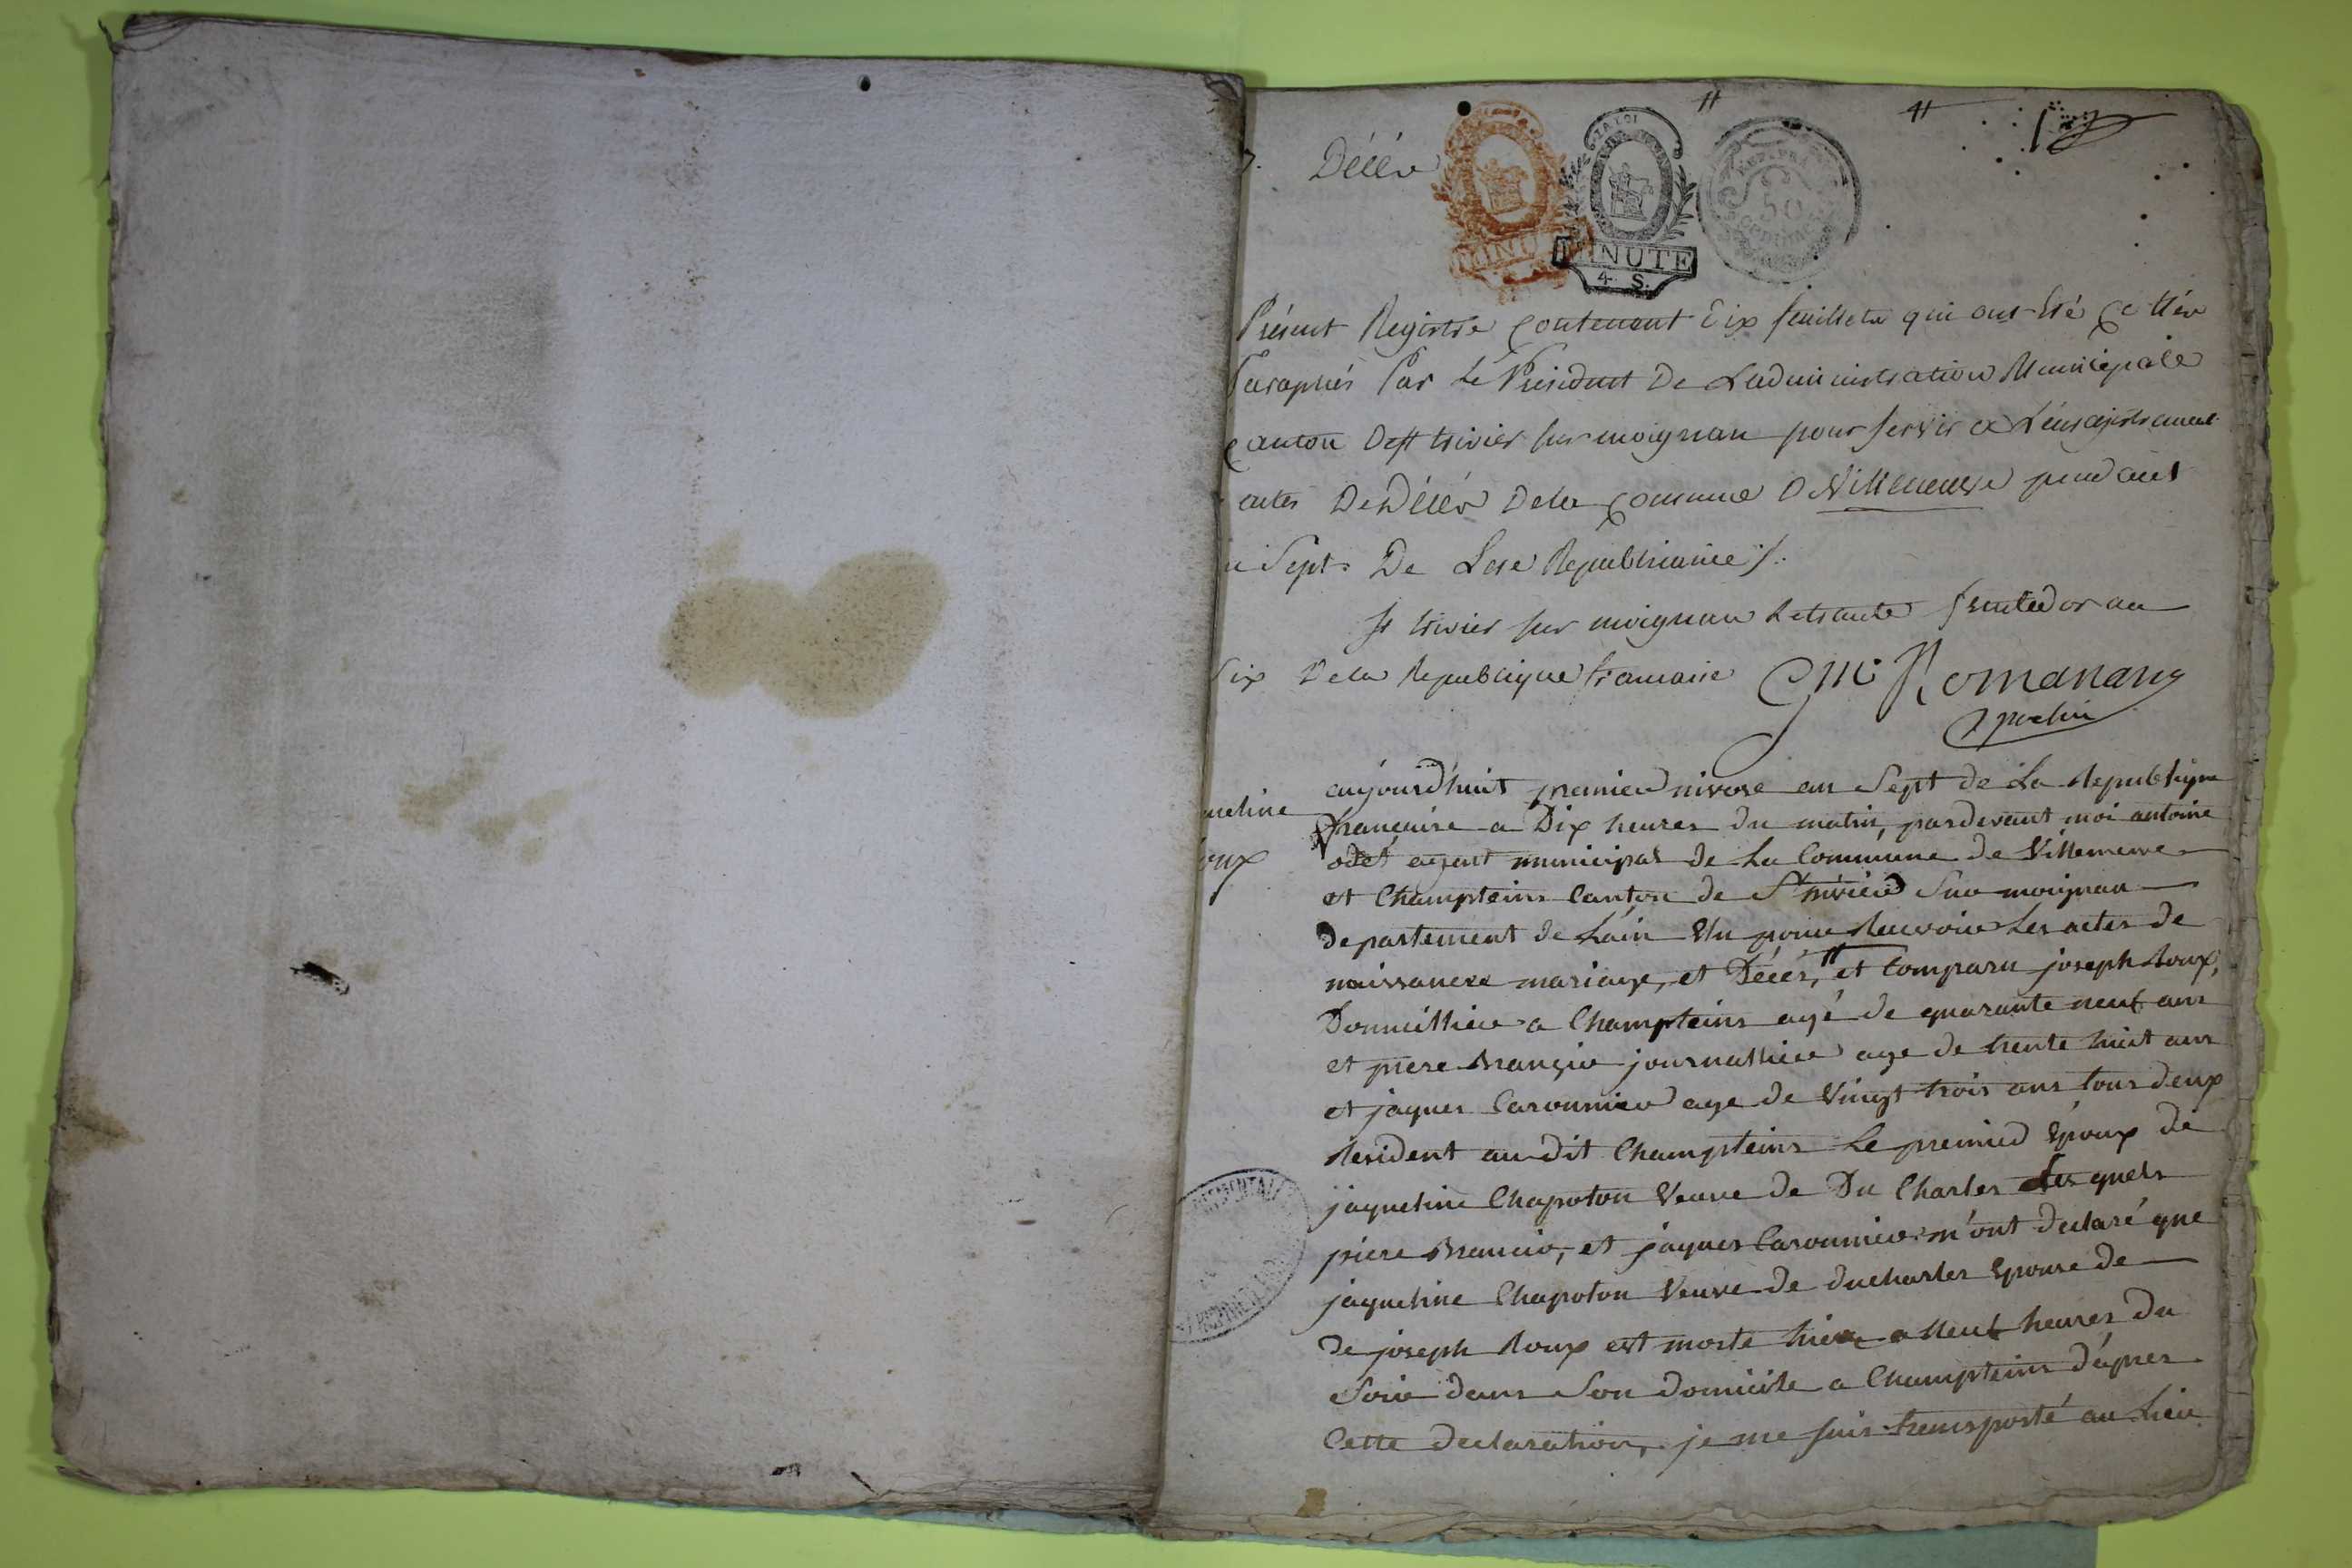 Décés
LA LOI
MINUTE
MINUTE
4. S.
REP. FRA
50
Centimes
Présent Registre Contenant dix feuillets qui ont été Cottés
Paraphés Par Le Président De Ladministration Municipale
Canton De St trivier sur moignan pour servir a Lenregistrement
actes De Décés Dela Commune De Villeneuve pendant
Sept De Lere Republicaine /.
St trivier sur moignan Le trante fructidor an
Six Dela Republique francaise Romanans
aujourd'huit premier nivose an Sept de La Republique
française a Dix heures du matin, pardevant moi antoine
odet agent municipal de La Commune de Villeneuve
et Champteins Canton de St trivier Sur moignan
departement de Lain Elu pour Recevoir Les actes de
naissances mariage, et Décés, et Comparu joseph Roux,
Domicillier a Champteins agé de quarante neuf ans
et piere journallier age de trente huit ans
et jaques Caronnier age de Vingt trois ans tous deux
Resident audit Champteins Le premier Epoux de
jaqueline Chapoton Veuve de Du Charles Lesquels
piere et jaques Caronnier m'ont declaré que
jaqueline Chapoton Veuve de ducharles Epouse de
de joseph Roux est morte hier a Neuf heures Du
Soir dans Son domicile a Champteins d'apres
Cette declaration, je me suis transporté au Lieu
queline
oux